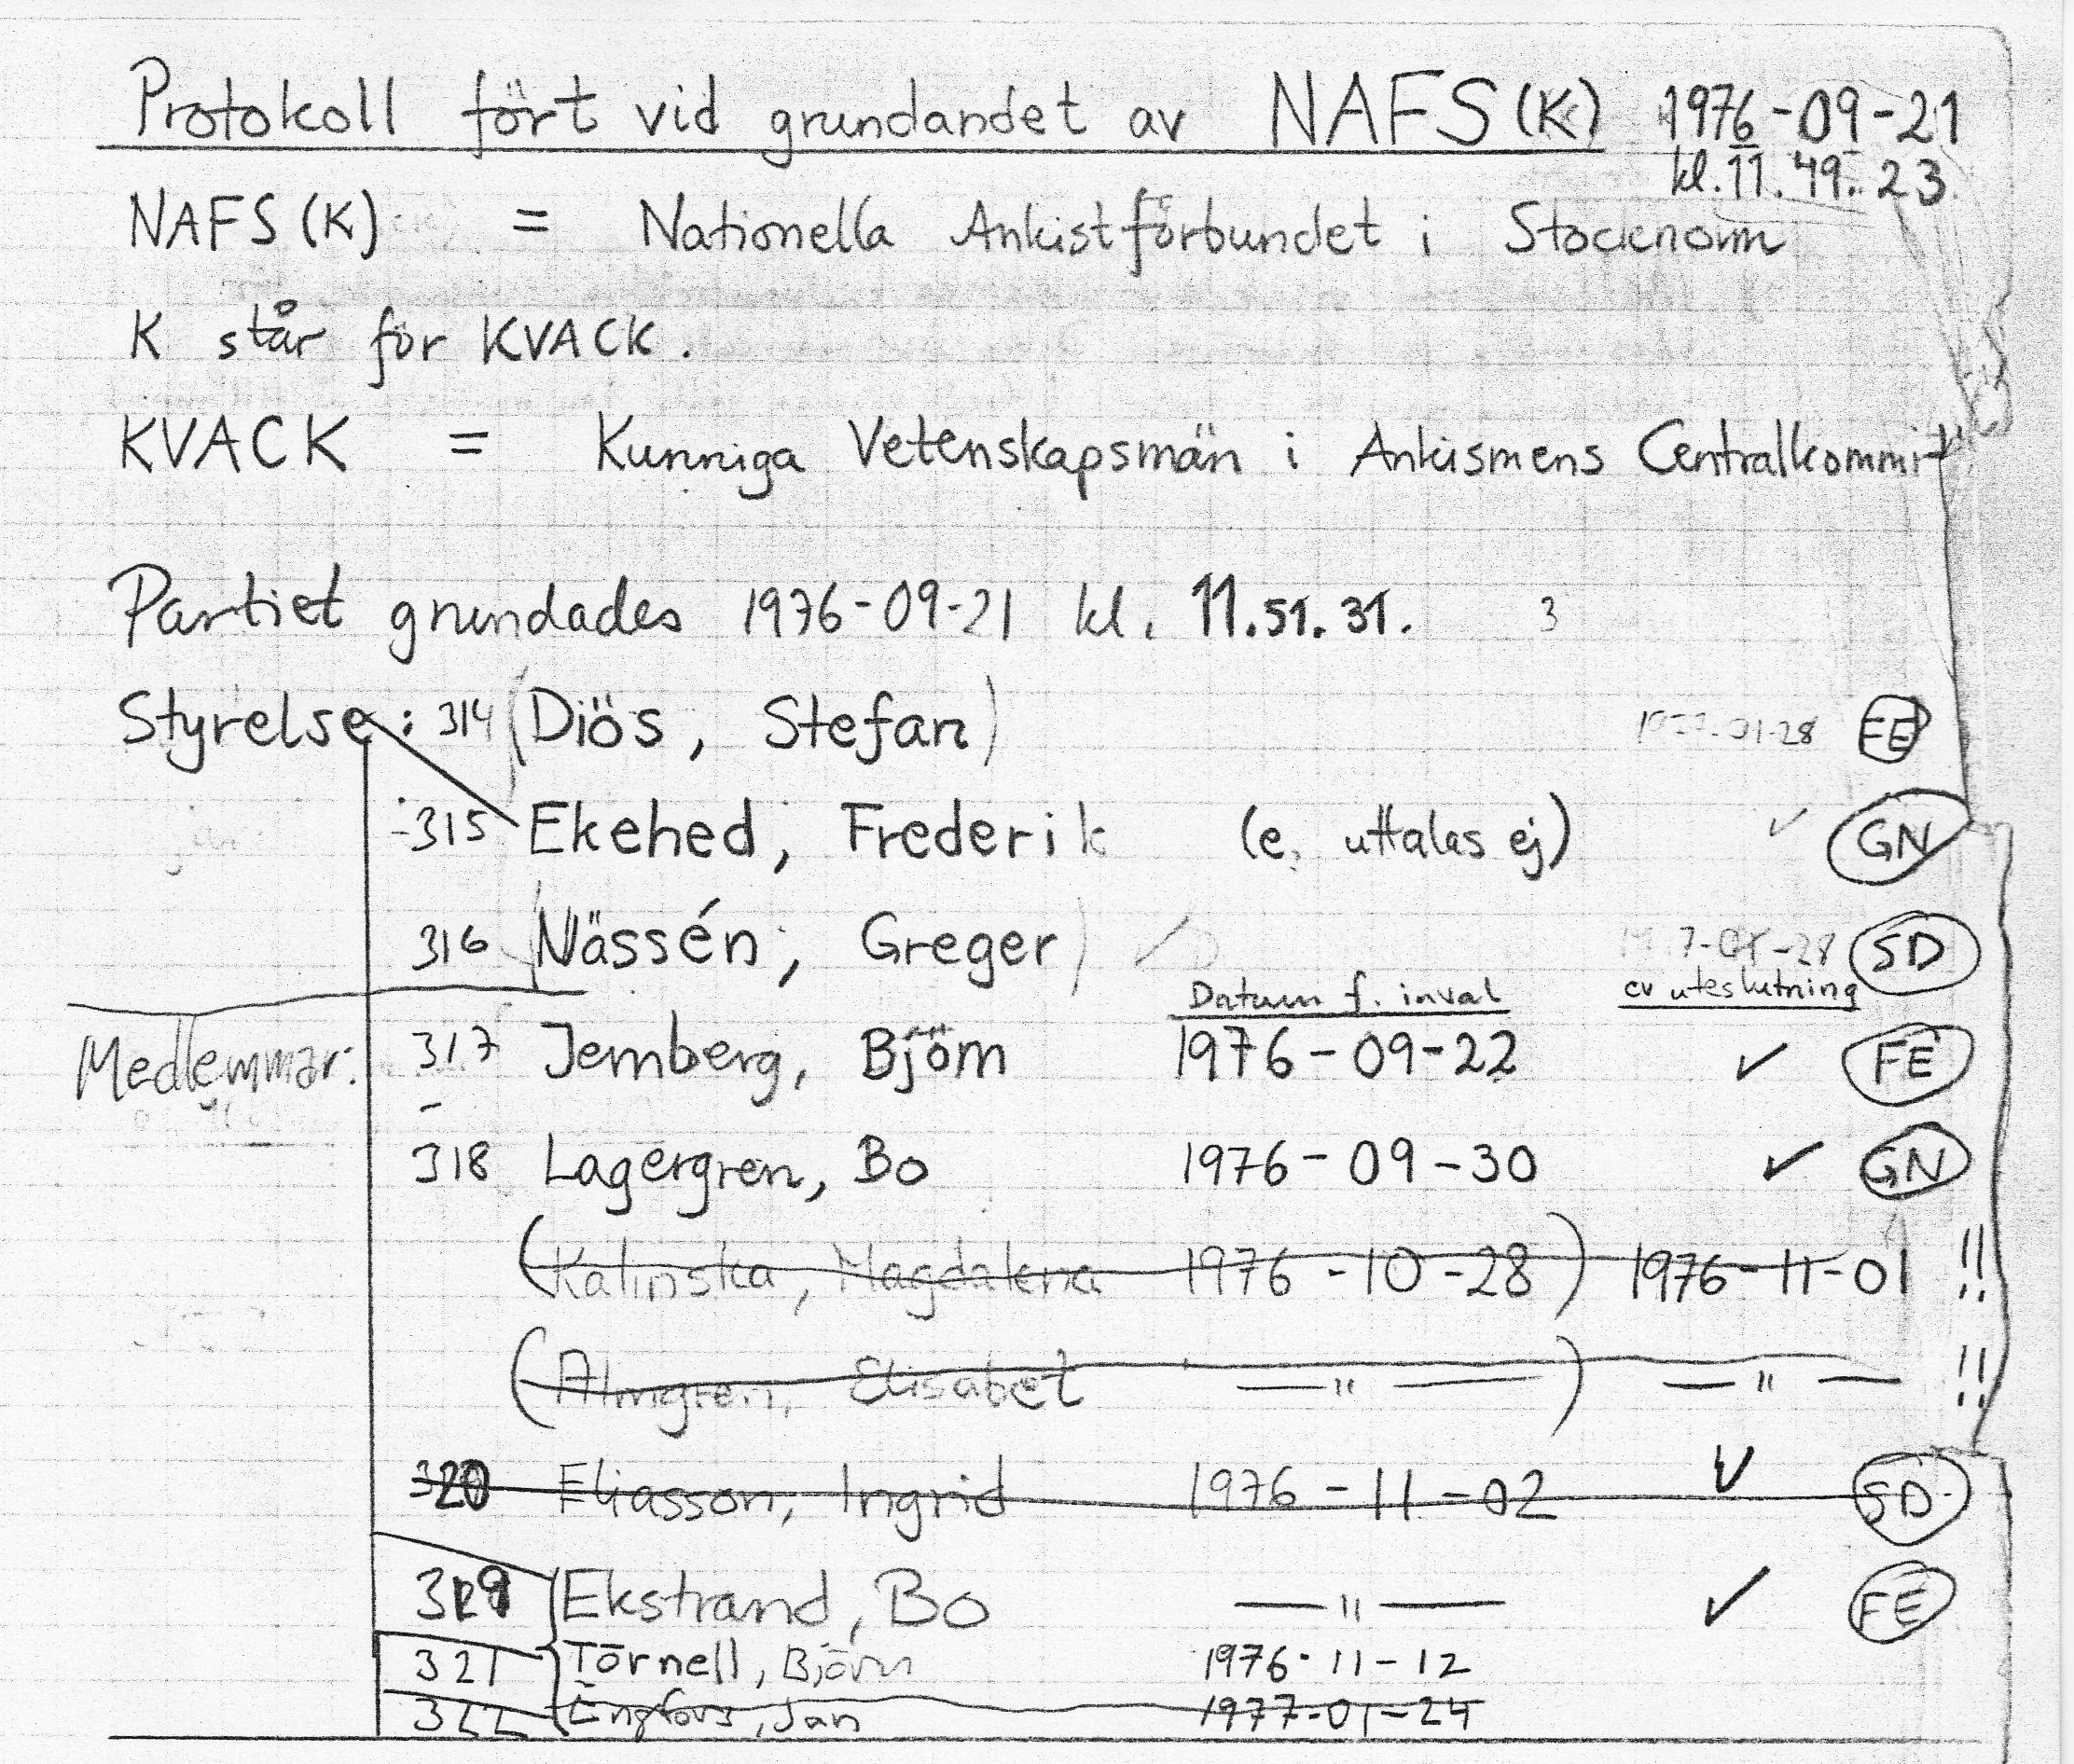 Protokoll fört vid grundandet av NAFS(K) 1976-09-21
kl. 11.49.23
NAFS (K) = Nationella Ankistförbundet i Stockholm
K står för KVACK.
KVACK = Kunniga Vetenskapsmän i Ankismens Centralkommit
Partiet grundades 1976-09-21 kl. 11.51.31. 3
Styrelse: 314 (Diös, Stefan) 01-28 FE
315 Ekehed, Frederik (e. uttalas ej) ✓ GN
316 (Nässén, Greger) 7-01-28 SD
Datum f. inval ev uteslutning
Medlemmar: 317 Jernberg, Björn 1976-09-22 ✓ FE
318 Lagergren, Bo 1976-09-30 ✓ GN
(Kalinska, Magdalena 1976-10-28) 1976-11-01 !!
(Almgren, Elisabet —"—) —"— !!
320 Eliasson, Ingrid 1976-11-02 ✓ SD
319 Ekstrand, Bo —"— ✓ FE
321 Törnell, Björn 1976-11-12
322 Engfors, Jan 1977-01-24